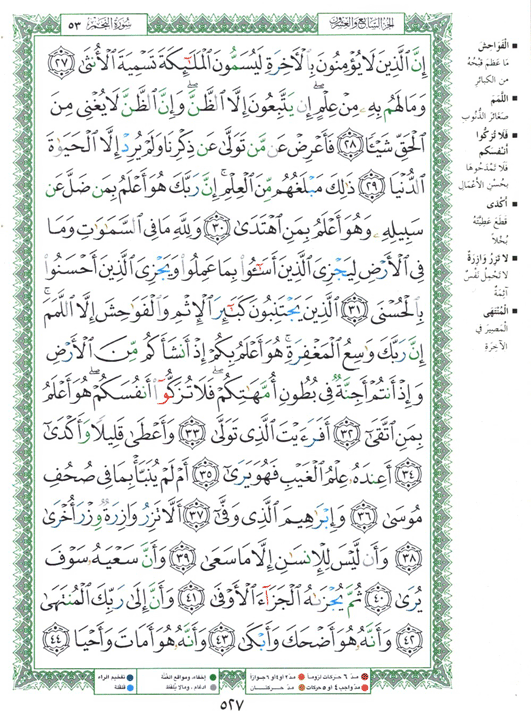 سُورَةُ النَّجْمِ ٥٣
الجزء السابع والعشرون
إِنَّ الَّذِينَ لَا يُؤْمِنُونَ بِالْآخِرَةِ لَيُسَمُّونَ الْمَلَائِكَةَ تَسْمِيَةَ الْأُنْثَىٰ ﴿٢٧﴾
وَمَا لَهُم بِهِ مِنْ عِلْمٍ إِن يَتَّبِعُونَ إِلَّا الظَّنَّ وَإِنَّ الظَّنَّ لَا يُغْنِي مِنَ
الْحَقِّ شَيْئًا ﴿٢٨﴾ فَأَعْرِضْ عَن مَّن تَوَلَّىٰ عَن ذِكْرِنَا وَلَمْ يُرِدْ إِلَّا الْحَيَوٰةَ
الدُّنْيَا ﴿٢٩﴾ ذَٰلِكَ مَبْلَغُهُم مِّنَ الْعِلْمِ إِنَّ رَبَّكَ هُوَ أَعْلَمُ بِمَن ضَلَّ عَن
سَبِيلِهِ وَهُوَ أَعْلَمُ بِمَنِ اهْتَدَىٰ ﴿٣٠﴾ وَلِلَّهِ مَا فِي السَّمَٰوَٰتِ وَمَا
فِي الْأَرْضِ لِيَجْزِيَ الَّذِينَ أَسَٰٓـُٔوا بِمَا عَمِلُوا وَيَجْزِيَ الَّذِينَ أَحْسَنُوا
بِالْحُسْنَى ﴿٣١﴾ الَّذِينَ يَجْتَنِبُونَ كَبَٰٓئِرَ الْإِثْمِ وَالْفَوَٰحِشَ إِلَّا اللَّمَمَ
إِنَّ رَبَّكَ وَٰسِعُ الْمَغْفِرَةِ هُوَ أَعْلَمُ بِكُمْ إِذْ أَنشَأَكُم مِّنَ الْأَرْضِ
وَإِذْ أَنتُمْ أَجِنَّةٌ فِي بُطُونِ أُمَّهَٰتِكُمْ فَلَا تُزَكُّوا أَنفُسَكُمْ هُوَ أَعْلَمُ
بِمَنِ اتَّقَىٰ ﴿٣٢﴾ أَفَرَءَيْتَ الَّذِي تَوَلَّىٰ ﴿٣٣﴾ وَأَعْطَىٰ قَلِيلًا وَأَكْدَىٰ
﴿٣٤﴾ أَعِندَهُ عِلْمُ الْغَيْبِ فَهُوَ يَرَىٰ ﴿٣٥﴾ أَمْ لَمْ يُنَبَّأْ بِمَا فِي صُحُفِ
مُوسَىٰ ﴿٣٦﴾ وَإِبْرَٰهِيمَ الَّذِي وَفَّىٰ ﴿٣٧﴾ أَلَّا تَزِرُ وَازِرَةٌ وِزْرَ أُخْرَىٰ
﴿٣٨﴾ وَأَن لَّيْسَ لِلْإِنسَٰنِ إِلَّا مَا سَعَىٰ ﴿٣٩﴾ وَأَنَّ سَعْيَهُ سَوْفَ
يُرَىٰ ﴿٤٠﴾ ثُمَّ يُجْزَىٰهُ الْجَزَآءَ الْأَوْفَىٰ ﴿٤١﴾ وَأَنَّ إِلَىٰ رَبِّكَ الْمُنتَهَىٰ
﴿٤٢﴾ وَأَنَّهُ هُوَ أَضْحَكَ وَأَبْكَىٰ ﴿٤٣﴾ وَأَنَّهُ هُوَ أَمَاتَ وَأَحْيَا ﴿٤٤﴾
■ الْفَوَاحِشَ
مَا عَظُمَ قُبْحُهُ
مِن الكبائرِ
■ اللَّمَمَ
صَغَائِرَ الذُّنُوبِ
■ فَلَا تُزَكُّوا
أَنفُسَكُمْ
فَلَا تَمْدَحُوهَا
بِحُسْنِ الأَعْمَالِ
■ أَكْدَى
قَطَعَ عَطِيَّتَهُ
بُخْلاً
■ لَا تَزِرُ وَازِرَةٌ
لَا تَحْمِلُ نَفْسٌ
آثِمَةٌ
■ الْمُنْتَهَى
الْمَصِيرَ فِي
الآخِرَةِ
مدّ ٦ حركات لزوماً مدّ ٢ أو ٤ أو ٦ جوازاً إخفاء، ومواقع الغُنَّة تفخيم الراء
مدّ واجب ٤ أو ٥ حركات مدّ حركتـان إدغام، ومالا يُلفَظ قلقلة
٥٢٧